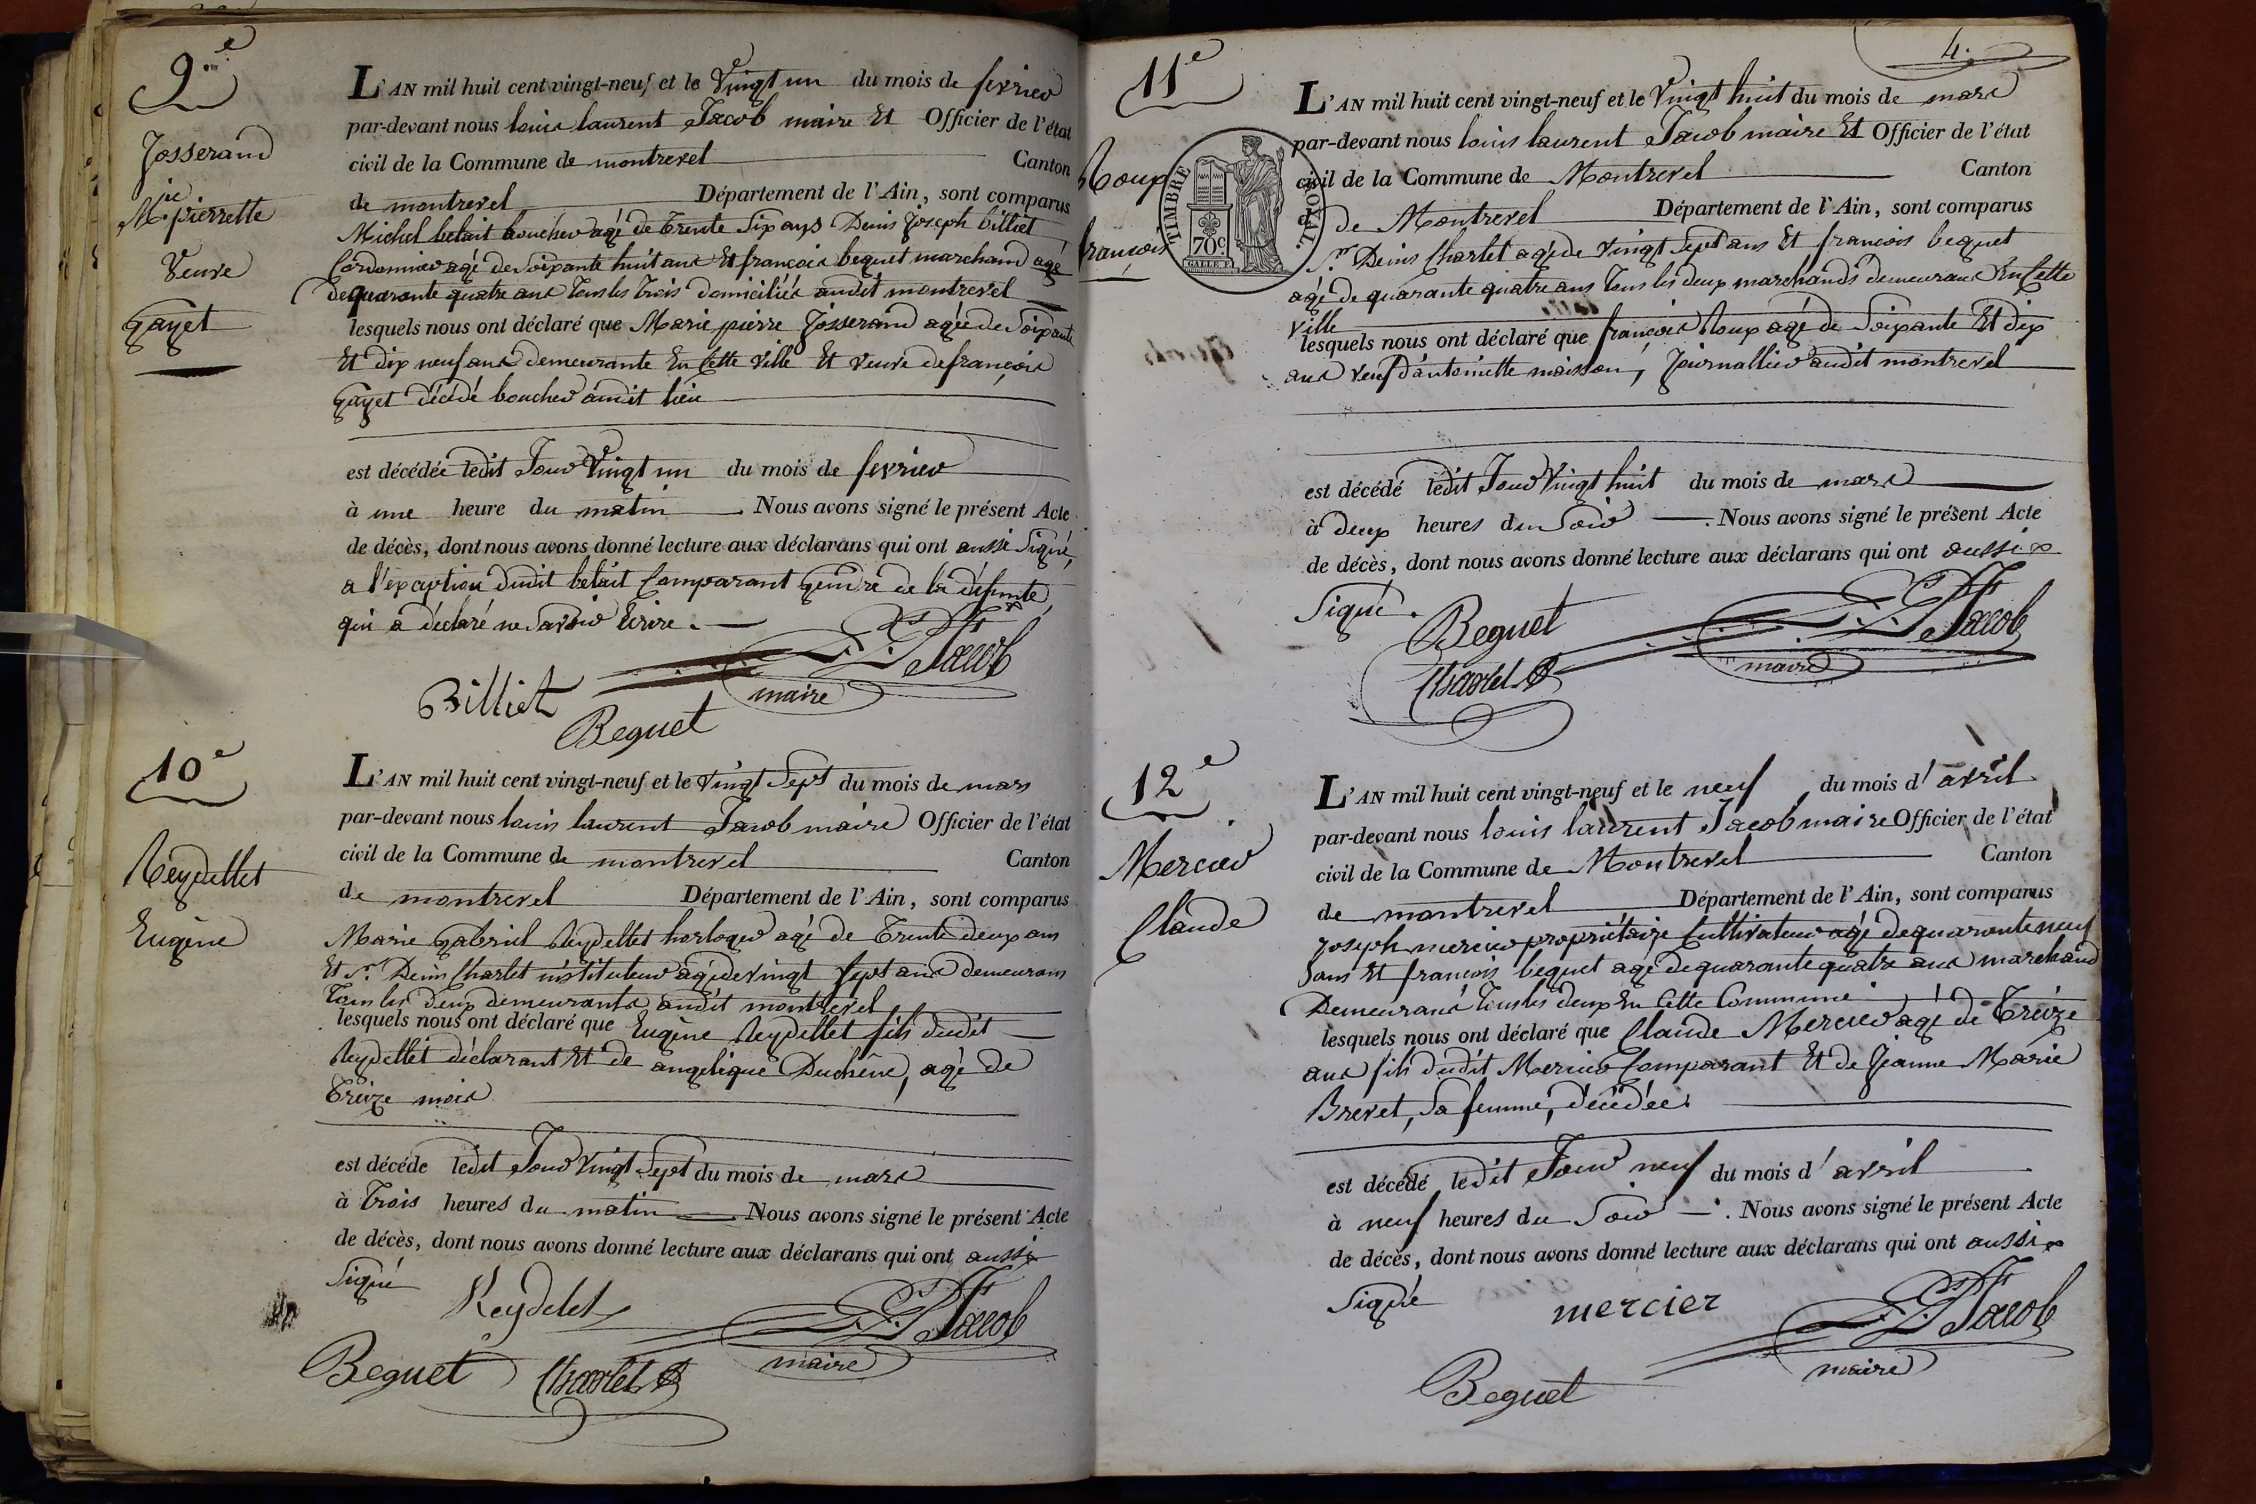 9e
Josserand
M.ie pierrette
Veuve
gayet
L'AN mil huit cent vingt-neuf et le Vingt un du mois de fevrier
par-devant nous louis laurent Jacob maire Et Officier de l'état
civil de la Commune de montrevel Canton
de montrevel Département de l'Ain, sont comparus
Michel belait boucher agé de trente Six ans Denis joseph billiet
Cordonnier agé de Soixante huit ans Et françois beguet marchand agé
de quarante quatre ans tous les trois domiciliés audit montrevel
lesquels nous ont déclaré que Marie pierre Josserand agée de Soixante
Et dix neuf ans demeurante En Cette Ville Et Veuve de françois
gayet décédé boucher audit lieu
est décédée ledit Jour Vingt un du mois de fevrier
à une heure du matin. Nous avons signé le présent Acte
de décès, dont nous avons donné lecture aux déclarans qui ont aussi Signé,
a l'exception dudit belait Comparant gendre de la défunte,
qui a déclaré ne Savoir Ecrire.
Jacob
maire
Billiet
Beguet
10e
Reydellet
Eugène
L'AN mil huit cent vingt-neuf et le vingt Sept du mois de mars
par-devant nous louis laurent Jacob maire Officier de l'état
civil de la Commune de montrevel Canton
de montrevel Département de l'Ain, sont comparus
Marie gabriel Reydellet horloger agé de trente deux ans
Et Sr. Denis Charlet instituteur agé de vingt Sept ans demeurans
tous les deux demeurants audit montrevel
lesquels nous ont déclaré que Eugène Reydellet fils dudit
Reydellet déclarant Et de angelique Duchêne, agé de
treize mois
est décéde ledit Jour Vingt Sept du mois de mars
à trois heures du matin. Nous avons signé le présent Acte
de décès, dont nous avons donné lecture aux déclarans qui ont aussi
Signé
Reydelet
Jacob
maire
Beguet Charlet
4.
11e
Loup
françois
TIMBRE ROYAL.
70c
L'AN mil huit cent vingt-neuf et le Vingt huit du mois de mars
par-devant nous louis laurent Jacob maire Et Officier de l'état
civil de la Commune de Montrevel Canton
de Montrevel Département de l'Ain, sont comparus
Sr. Denis Charlet agé de Vingt Sept ans Et françois beguet
agé de quarante quatre ans tous les deux marchands demeurans En Cette
Ville
lesquels nous ont déclaré que françois Loup agé de Soixante Et dix
ans Veuf d'antoinette maisson, Journallier audit montrevel
est décédé ledit Jour Vingt huit du mois de mars
à deux heures du Soir. Nous avons signé le présent Acte
de décès, dont nous avons donné lecture aux déclarans qui ont aussi
Signé.
Beguet
Jacob
maire
Charlet
12e
Mercier
Claude
L'AN mil huit cent vingt-neuf et le neuf du mois d'avril
par-devant nous louis laurent Jacob maire Officier de l'état
civil de la Commune de Montrevel Canton
de montrevel Département de l'Ain, sont comparus
joseph mercier propriétaire Cultivateur agé de quarante neuf
ans Et françois beguet agé de quarante quatre ans marchand
Demeurans tous les deux En Cette Commune
lesquels nous ont déclaré que Claude Mercier agé de treize
ans fils dudit Mercier Comparant Et de Jeanne Marie
Brevet, Sa femme, décédée.
est décédé ledit Jour neuf du mois d'avril
à neuf heures du Soir. Nous avons signé le présent Acte
de décès, dont nous avons donné lecture aux déclarans qui ont aussi
Signé
mercier
Jacob
maire
Beguet